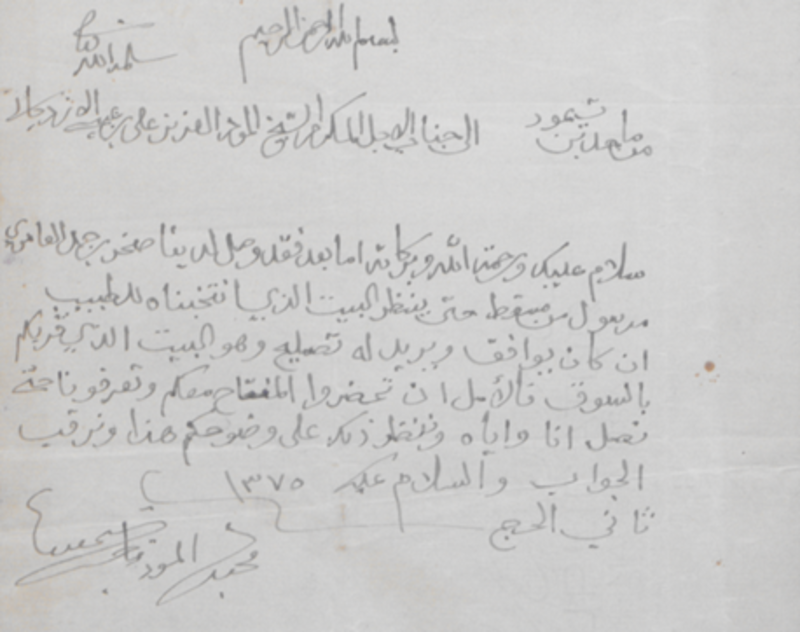 بسم الله الرحمن الرحيم
سلمه الله
من ماجد بن تيمور
الى جناب الاجل المكرم الشيخ المود العزيز علي بن عبد الله
سلام عليك ورحمة الله وبركاته اما بعد فقد وصل لدينا صخر بن حمد العامري
مرسول من مسقط حتى ينظر البيت الذي انتخبناه للطبيب
ان كان يوافق ويريد له تصليح وهو البيت الذي قربكم
بالسوق فالأمل ان تحضروا المفتاح معكم وتعرفونا حتى
نصل انا واياه وننظر ذلك على وضوحكم هذا ونرقب
الجواب والسلام عليكم ١٣٧٥
ثاني الحج
محبكم